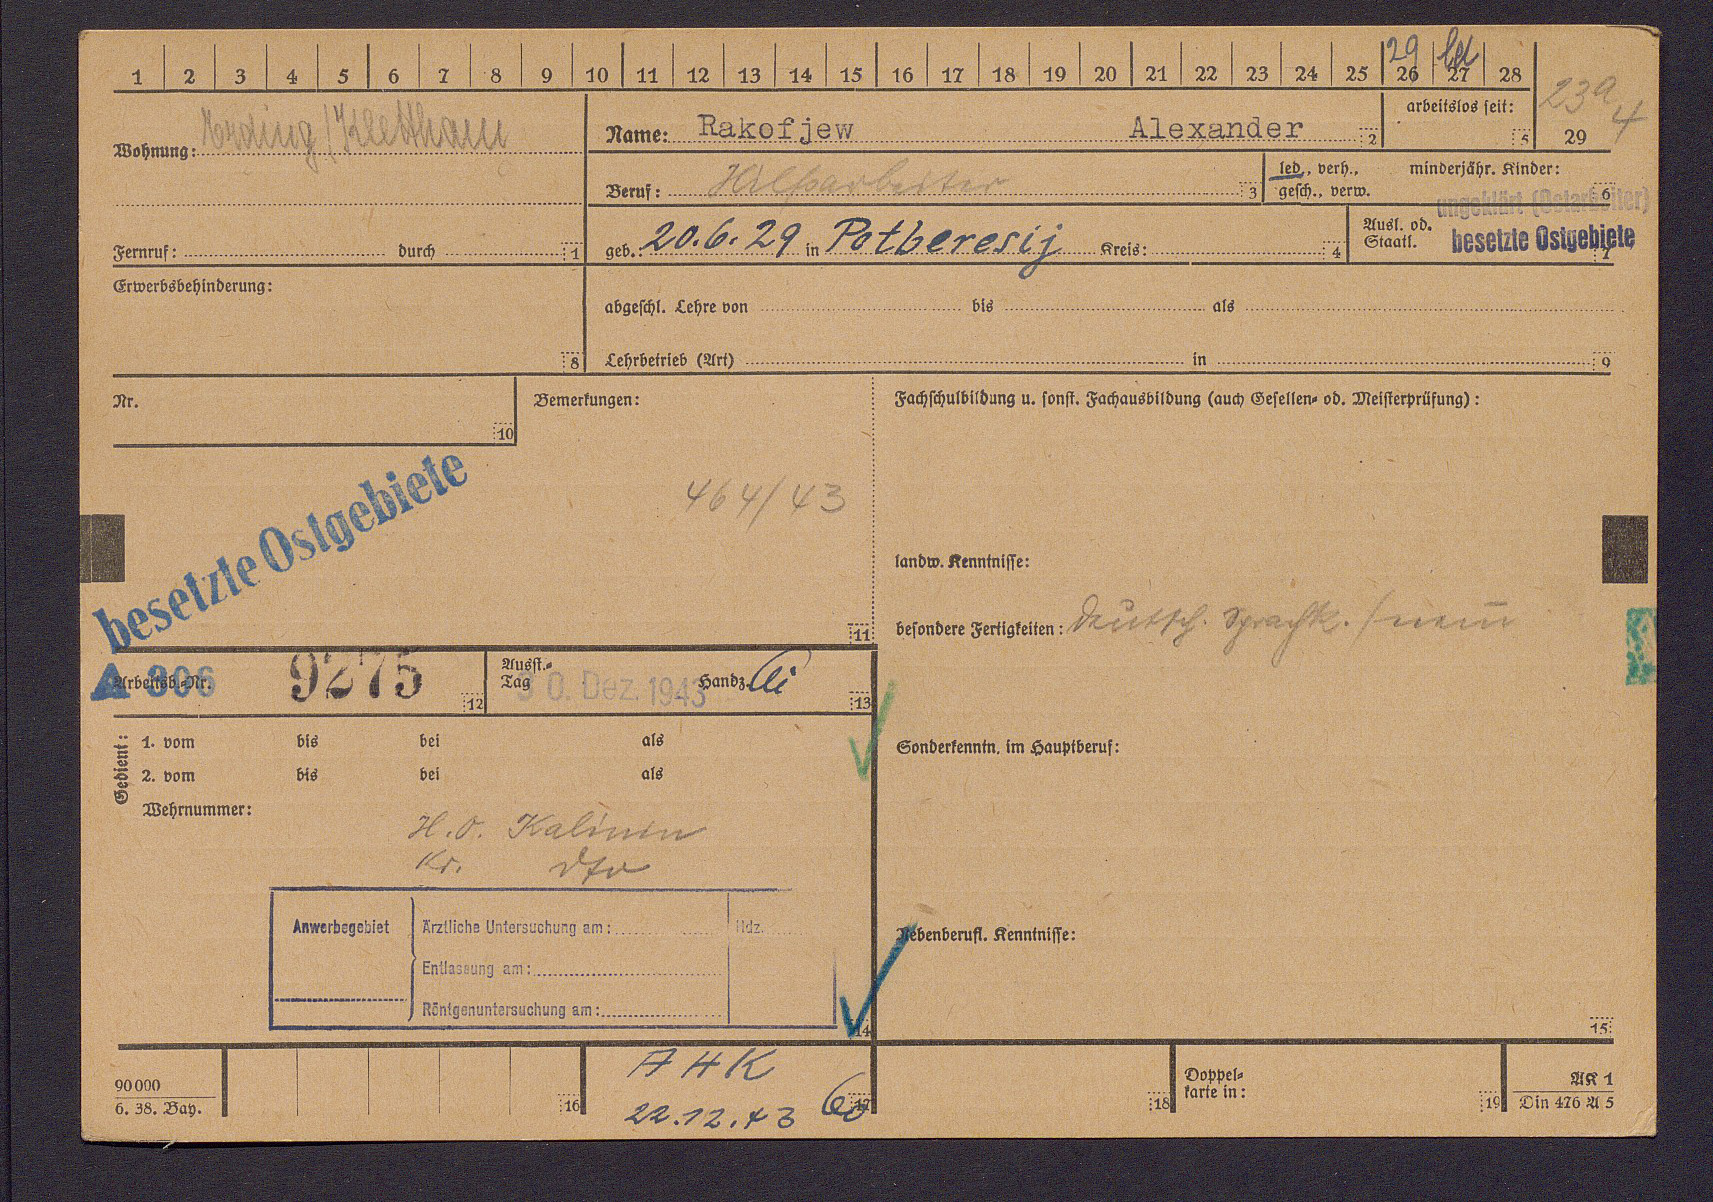 1 2 3 4 5 6 7 8 9 10 11 12 13 14 15 16 17 18 19 20 21 22 23 24 25 26 27 28 29
29 led
23a 4
Wohnung: Erding/Klettham
Name: Rakofjew Alexander 2
arbeitslos seit: 5
Beruf: Hilfsarbeiter 3
led., verh., gesch., verw.
minderjähr. Kinder: 6
ungeklärt (Ostarbeiter)
Fernruf: durch 1
geb.: 20.6.29 in Potberesij Kreis: 4
Ausl. od. Staatl. besetzte Ostgebiete 7
Erwerbsbehinderung: 8
abgeschl. Lehre von bis als
Lehrbetrieb (Art) in 9
Nr. 10
Bemerkungen:
464/43
11
Fachschulbildung u. sonst. Fachausbildung (auch Gesellen- od. Meisterprüfung):
besetzte Ostgebiete
landw. Kenntnisse:
besondere Fertigkeiten: Deutsch. Sprachk. / nein
Arbeitsb.-Nr. A 306 9275 12
Ausst.-Tag 30. Dez. 1943 Handz. 13
Gedient:
1. vom bis bei als
2. vom bis bei als
Wehrnummer:
Sonderkenntn. im Hauptberuf:
H.O. Kalinin
Kr. dto
Anwerbegebiet
Ärztliche Untersuchung am: Hdz.
Entlassung am:
Röntgenuntersuchung am:
14
Nebenberufl. Kenntnisse:
15
90000
6. 38. Bay.
16
AHK
22.12.43
17
18
Doppel-
karte in: 19
AK 1
Din 476 A 5